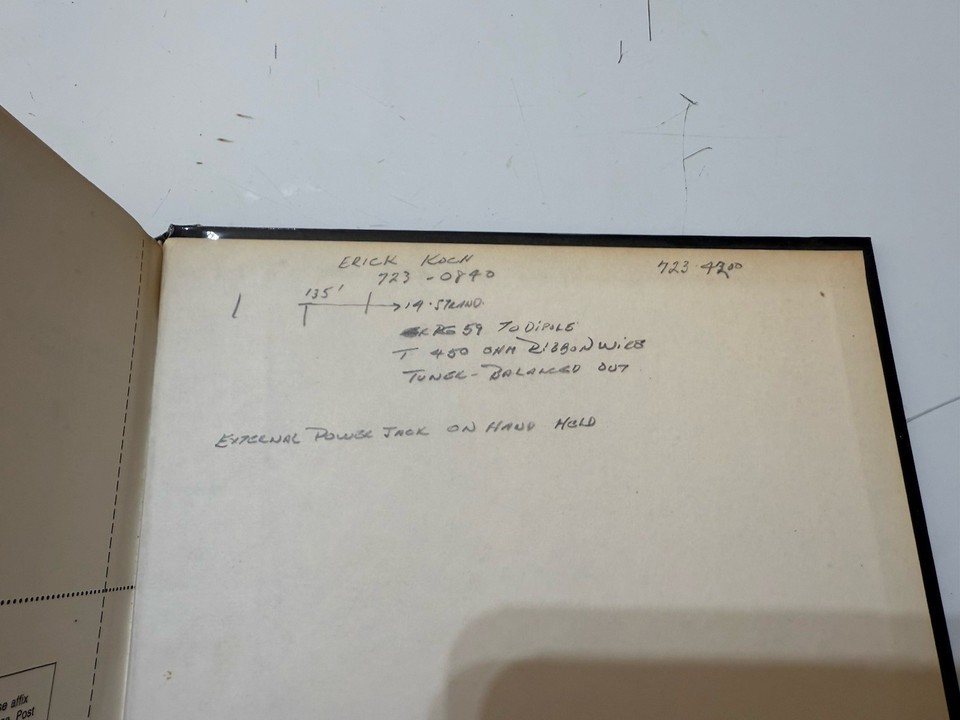 ERICK KOCH
723-0840
723-4200
135'
14-STRAND
RG 59 TO DIPOLE
T 450 OHM RIBBON WIRE
TUNER-BALANCED OUT
EXTERNAL POWER JACK ON HAND HELD
se affix
Post